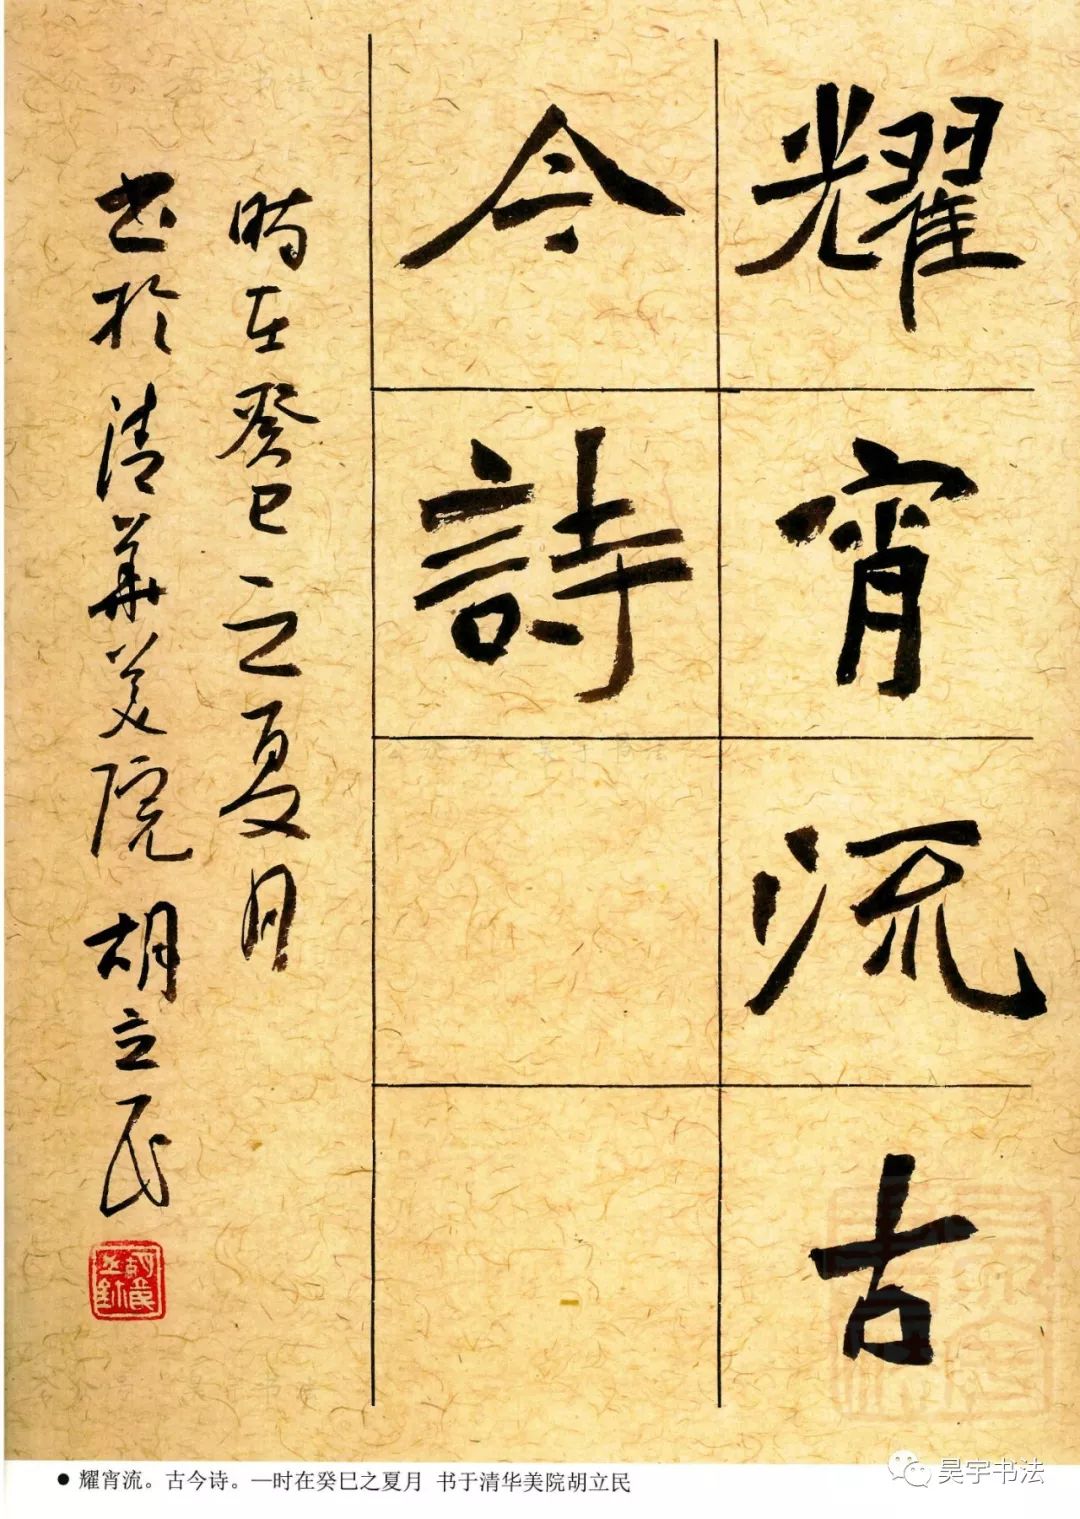 耀宵流古
今詩
時在癸巳之夏月
书於清華美院胡立民
●耀宵流。古今诗。—时在癸巳之夏月 书于清华美院胡立民
昊宇书法